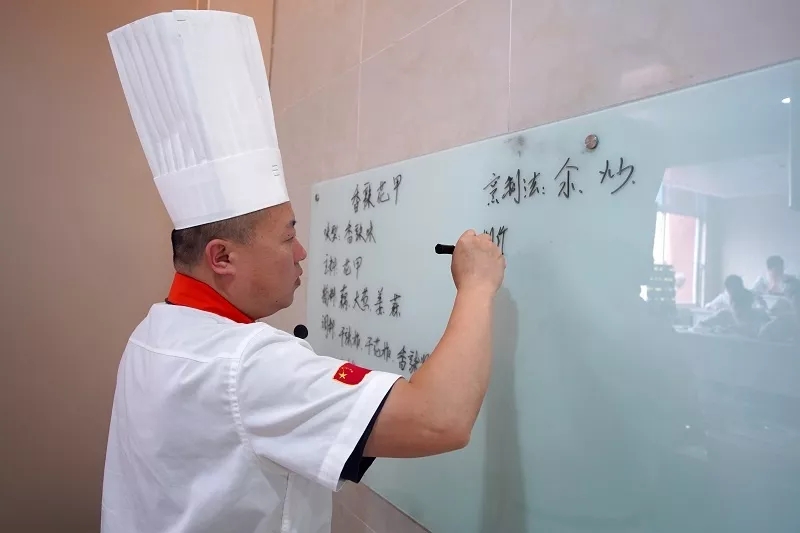 香辣花甲
味型: 香辣味
主料 花甲
辅料 藕 大葱 姜 蒜
调料 干辣椒. 干花椒. 香辣
烹制法: 尒 炒